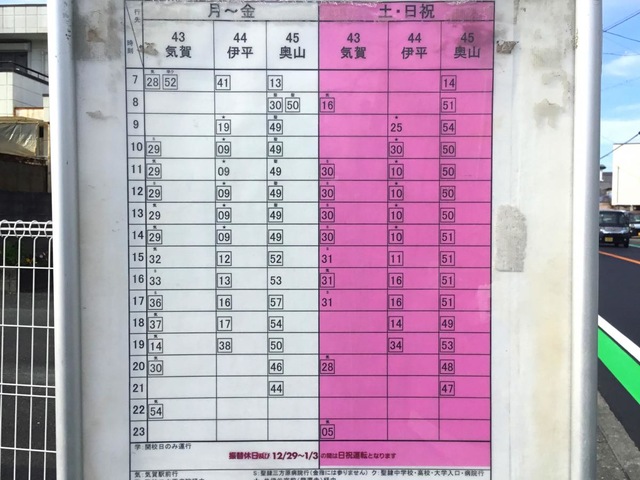 行先 月～金 土・日祝
時刻 43 44 45 43 44 45
気賀 伊平 奥山 気賀 伊平 奥山
7 28 52 41 13 14
8 30 50 16 51
9 19 49 25 54
10 29 09 49 30 50
11 29 09 49 30 10 50
12 29 09 49 30 10 50
13 29 09 49 30 10 50
14 29 09 49 30 10 51
15 32 12 52 31 11 51
16 33 13 53 31 16 51
17 36 16 57 31 16 51
18 37 17 54 14 49
19 14 38 50 34 53
20 30 46 28 48
21 44 47
22 54
23 05
学：開校日のみ運行
振替休日及び12/29～1/3の間は日祝運転となります
気：気賀駅前行 S：聖隷三方原病院行(金指には参りません) ク：聖隷中学校・高校・大学入口・病院行